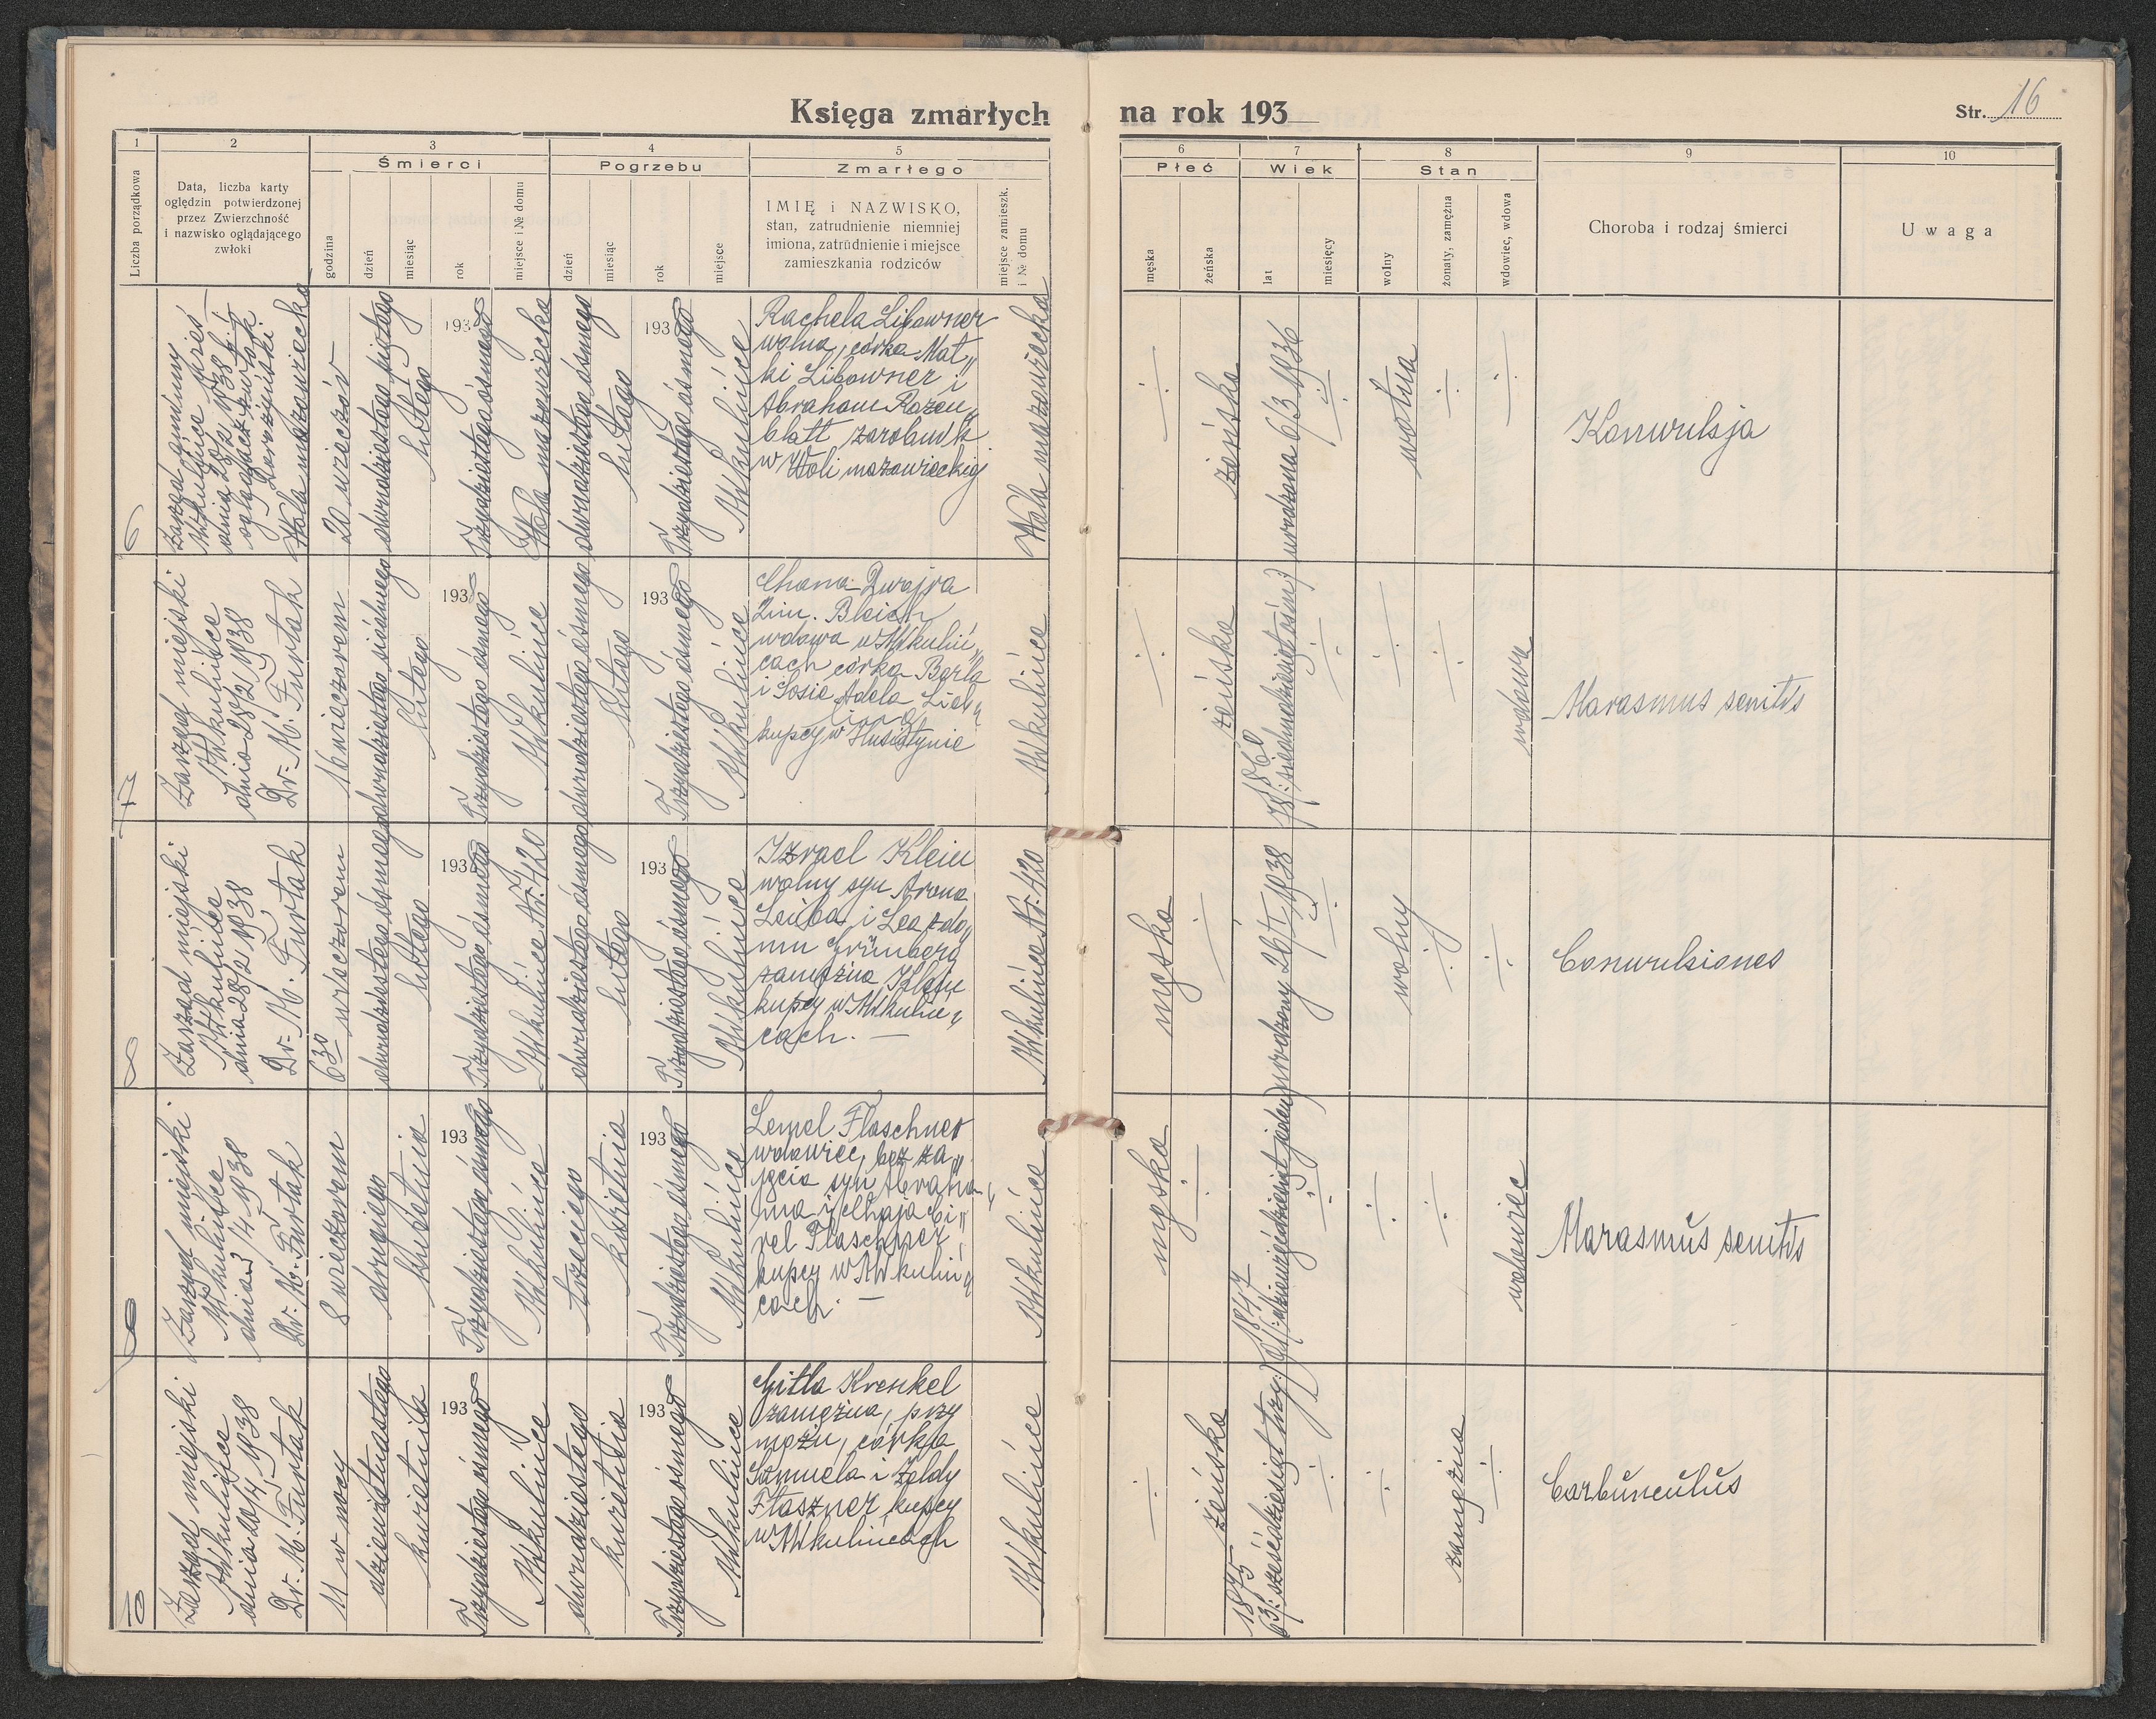 Księga zmarłych na rok 193
Str. 16
1
2
3
4
5
6
7
8
9
10
Liczba porządkowa
Data, liczba karty
oględzin potwierdzonej
przez Zwierzchność
i nazwisko oglądającego
zwłoki
Śmierci
godzina
dzień
miesiąc
rok
miejsce i № domu
Pogrzebu
dzień
miesiąc
rok
miejsce
Zmarłego
IMIĘ i NAZWISKO,
stan, zatrudnienie niemniej
imiona, zatrudnienie i miejsce
zamieszkania rodziców
miejsce zamieszk.
i № domu
Płeć
męska
żeńska
Wiek
lat
miesięcy
Stan
wolny
żonaty, zamężna
wdowiec, wdowa
Choroba i rodzaj śmierci
Uwaga
6
Zarząd gminny
Mikulińce wieś
dnia 28/2 1938
oglądacz zwłok
Wola mazowiecka
20 wieczór
dwudziestego piątego
lutego
1938
Trzydziestego ósmego
Wola mazowiecka
dwudziestego ósmego
lutego
1938
Trzydziestego ósmego
Mikulińce
Rachela Libowner
wolna, córka Mat„
ki Libowner i
Abraham Rozen„
blatt zarobnik
w Woli mazowieckiej
Wola mazowiecka
÷
żeńska
urodzona 6/3 1936
÷
wolna
÷
÷
Konwulsja
7
Zarząd miejski
Mikulińce
dnia 28/2 1938
Dr. M. Furtak
16 wieczorem
dwudziestego siódmego
lutego
1938
Trzydziestego ósmego
Mikulińce
dwudziestego ósmego
lutego
1938
Trzydziestego ósmego
Mikulińce
Chana Dwojra
2im. Bleich
wdowa w Mikuliń„
cach córka Berla
i Sosie Adela Lieb„
kupcy w Husiatynie
Mikulińce
÷
żeńska
1860
78/: siedmdziesiąt ośm:/
÷
÷
÷
wdowa
Marasmus senilis
8
Zarząd miejski
Mikulińce
dnia 28/2 1938
Dr. M. Furtak
6 30 wieczorem
dwudziestego ósmego
lutego
1938
Trzydziestego ósmego
Mikulińce Nr. 420
dwudziestego ósmego
lutego
1938
Trzydziestego ósmego
Mikulińce
Izrael Klein
wolny syn Arona
Leiba i Lea z do„
mu Grünberg
zamężna Klein
kupcy w Mikuliń„
cach. —
Mikulińce Nr. 420
męska
÷
urodzony 26/I 1938
÷
wolny
÷
÷
Conwulsiones
9
Zarząd miejski
Mikulińce
dnia 3/4 1938
Dr. M. Furtak
8 wieczorem
drugiego
kwietnia
1938
Trzydziestego ósmego
Mikulińce
trzeciego
kwietnia
1938
Trzydziestego ósmego
Mikulińce
Lemel Flaschner
wdowiec, bez za„
jęcia syn Abraha„
ma i Chaja Ci„
rel Flaschner
kupcy w Mikuliń„
cach. —
Mikulińce
męska
÷
1847
91/: dziewięćdziesiąt jeden:/
÷
÷
÷
wdowiec
Marasmus senilis
10
Zarząd miejski
Mikulińce
dnia 20/4 1938
Dr. M. Furtak
11 w nocy
dziewiętnastego
kwietnia
1938
Trzydziestego ósmego
Mikulińce
dwudziestego
kwietnia
1938
Trzydziestego ósmego
Mikulińce
Gitla Krenkel
zamężna, przy
mężu, córka
Szmuela i Zeldy
Flaszner kupcy
w Mikulińcach
Mikulińce
÷
żeńska
1875
63/: sześćdziesiąt trzy:/
÷
÷
zamężna
÷
Carbunculus